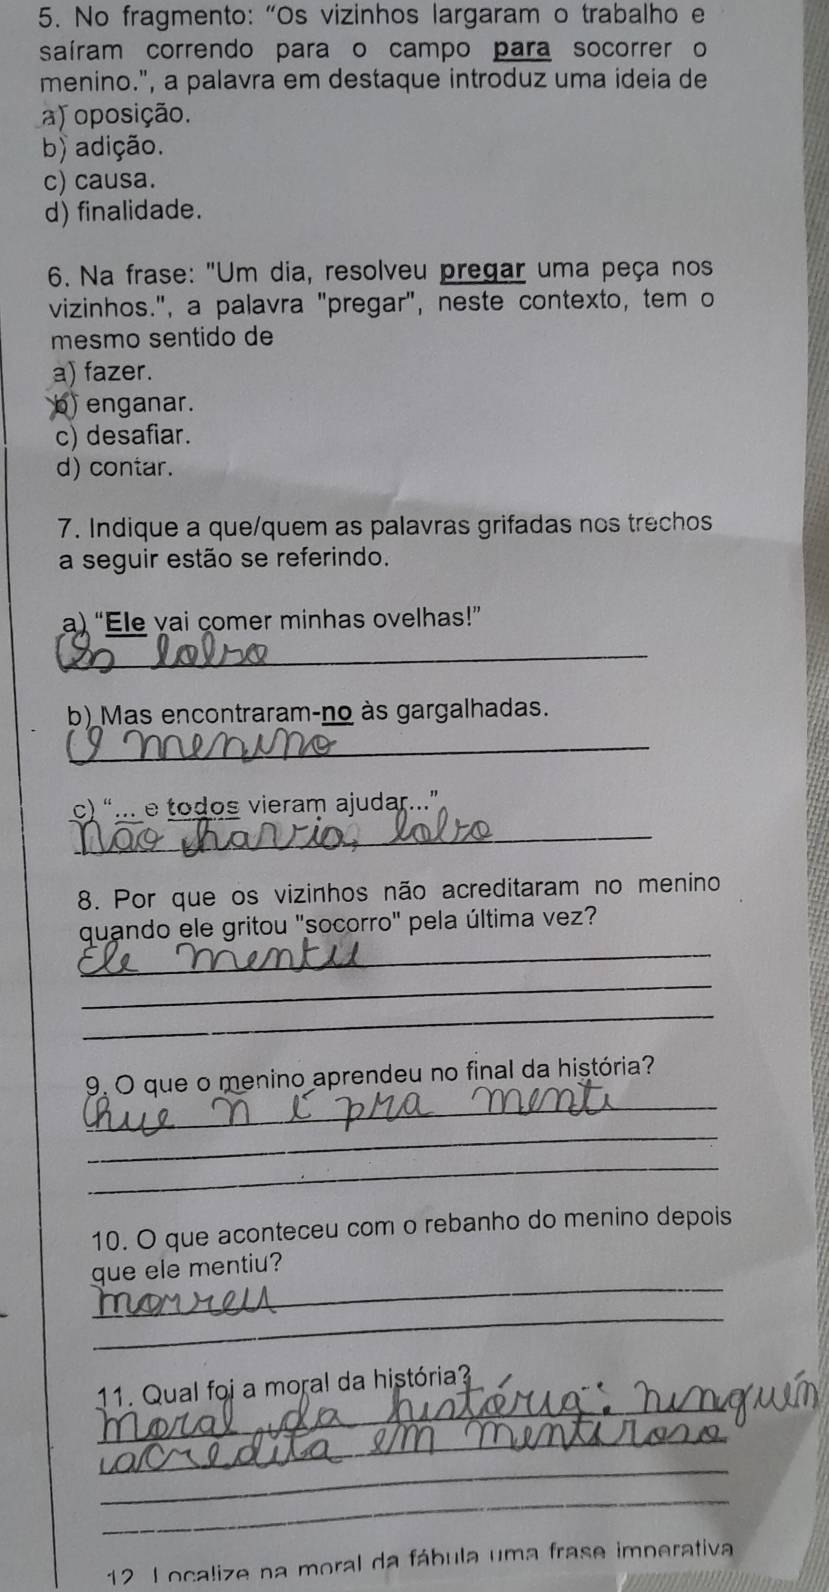 5. No fragmento: "Os vizinhos largaram o trabalho e
saíram correndo para o campo para socorrer o
menino.", a palavra em destaque introduz uma ideia de
a) oposição.
b) adição.
c) causa.
d) finalidade.
6. Na frase: "Um dia, resolveu pregar uma peça nos
vizinhos.", a palavra "pregar", neste contexto, tem o
mesmo sentido de
a) fazer.
b) enganar.
c) desafiar.
d) contar.
7. Indique a que/quem as palavras grifadas nos trechos
a seguir estão se referindo.
a) "Ele vai comer minhas ovelhas!"
lobo
b) Mas encontraram-no às gargalhadas.
O menino
c) "... e todos vieram ajudar..."
não havia lobo
8. Por que os vizinhos não acreditaram no menino
quando ele gritou "socorro" pela última vez?
Ele menti
9. O que o menino aprendeu no final da história?
Que ñ é pra menti
10. O que aconteceu com o rebanho do menino depois
que ele mentiu?
morreu
11. Qual foi a moral da história?
moral da história: ninguém
acredita em mentiroso
12. Localize na moral da fábula uma frase imperativa